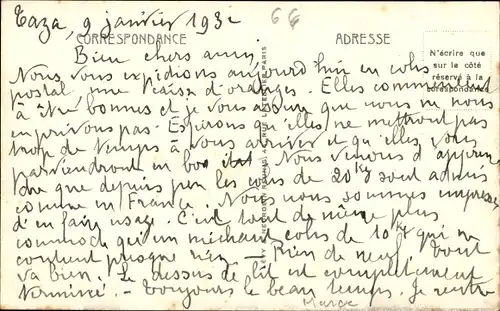 Taza, 9 janvier 193
66
CORRESPONDANCE
ADRESSE
N'écrire que
sur le côté
réservé à la
correspondance
Bien chers amis,
Nous vous expédions aujourd'hui en colis
postal une caisse d'oranges. Elles commencent
à être bonnes et je vous assure que nous ne nous
en privons pas. Espérons qu'elles ne mettront pas
trop de temps à vous arriver et qu'elles vous
parviendront en bon état. Nous venons d'appren
dre que depuis peu les colis de 20 Kg sont admis
comme en France. Nous nous sommes empressés
d'en faire usage. C'est tout de même plus
commode qu'un méchant colis de 10 Kg qui ne
contient presque rien. — Rien de neuf. Tout
va bien. Le dessus de lit est complètement
terminé. — Toujours le beau temps. Je rentre
Maroc
LÉVY & NEURDEIN RÉUNIS, RUE LETELLIER, PARIS